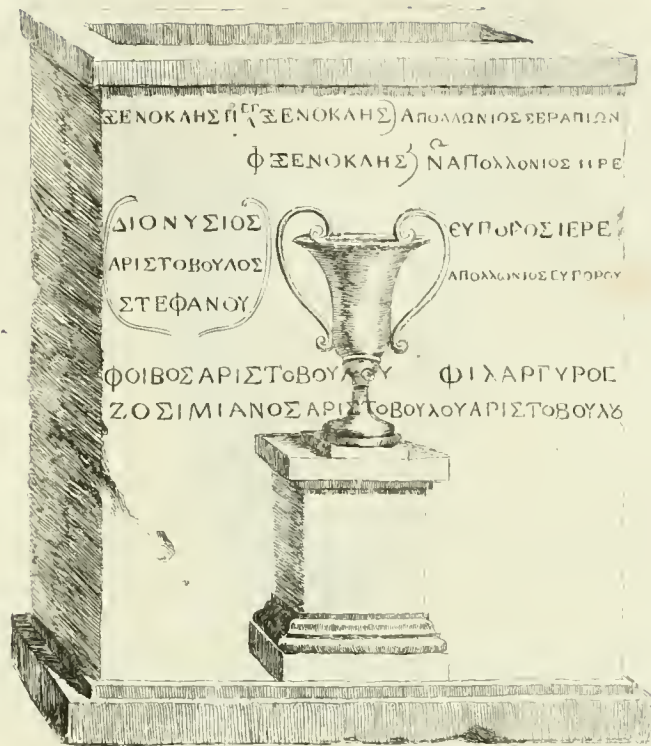 ΞΕΝΟΚΛΗΣ ΞΕΝΟΚΛΗΣ) ΑΠΟΛΛΩΝΙΟΣ ΣΕΡΑΠΙΩΝ
ΦΞΕΝΟΚΛΗΣ) ΝΑΠΟΛΛΟΝΙΟΣ ΙΕΡΕ
ΔΙΟΝΥΣΙΟΣ
ΑΡΙΣΤΟΒΟΥΛΟΣ
ΣΤΕΦΑΝΟΥ
ΕΥΠΟΡΟΣΙΕΡΕ
ΑΠΟΛΛΩΝΙΟΣΕΥΠΟΡΟΥ
ΦΟΙΒΟΣΑΡΙΣΤΟΒΟΥΛΟΥ ΦΙΛΑΡΓΥΡΟΣ
ΖΟΣΙΜΙΑΝΟΣΑΡΙΣΤΟΒΟΥΛΟΥΑΡΙΣΤΟΒΟΥΛȣ